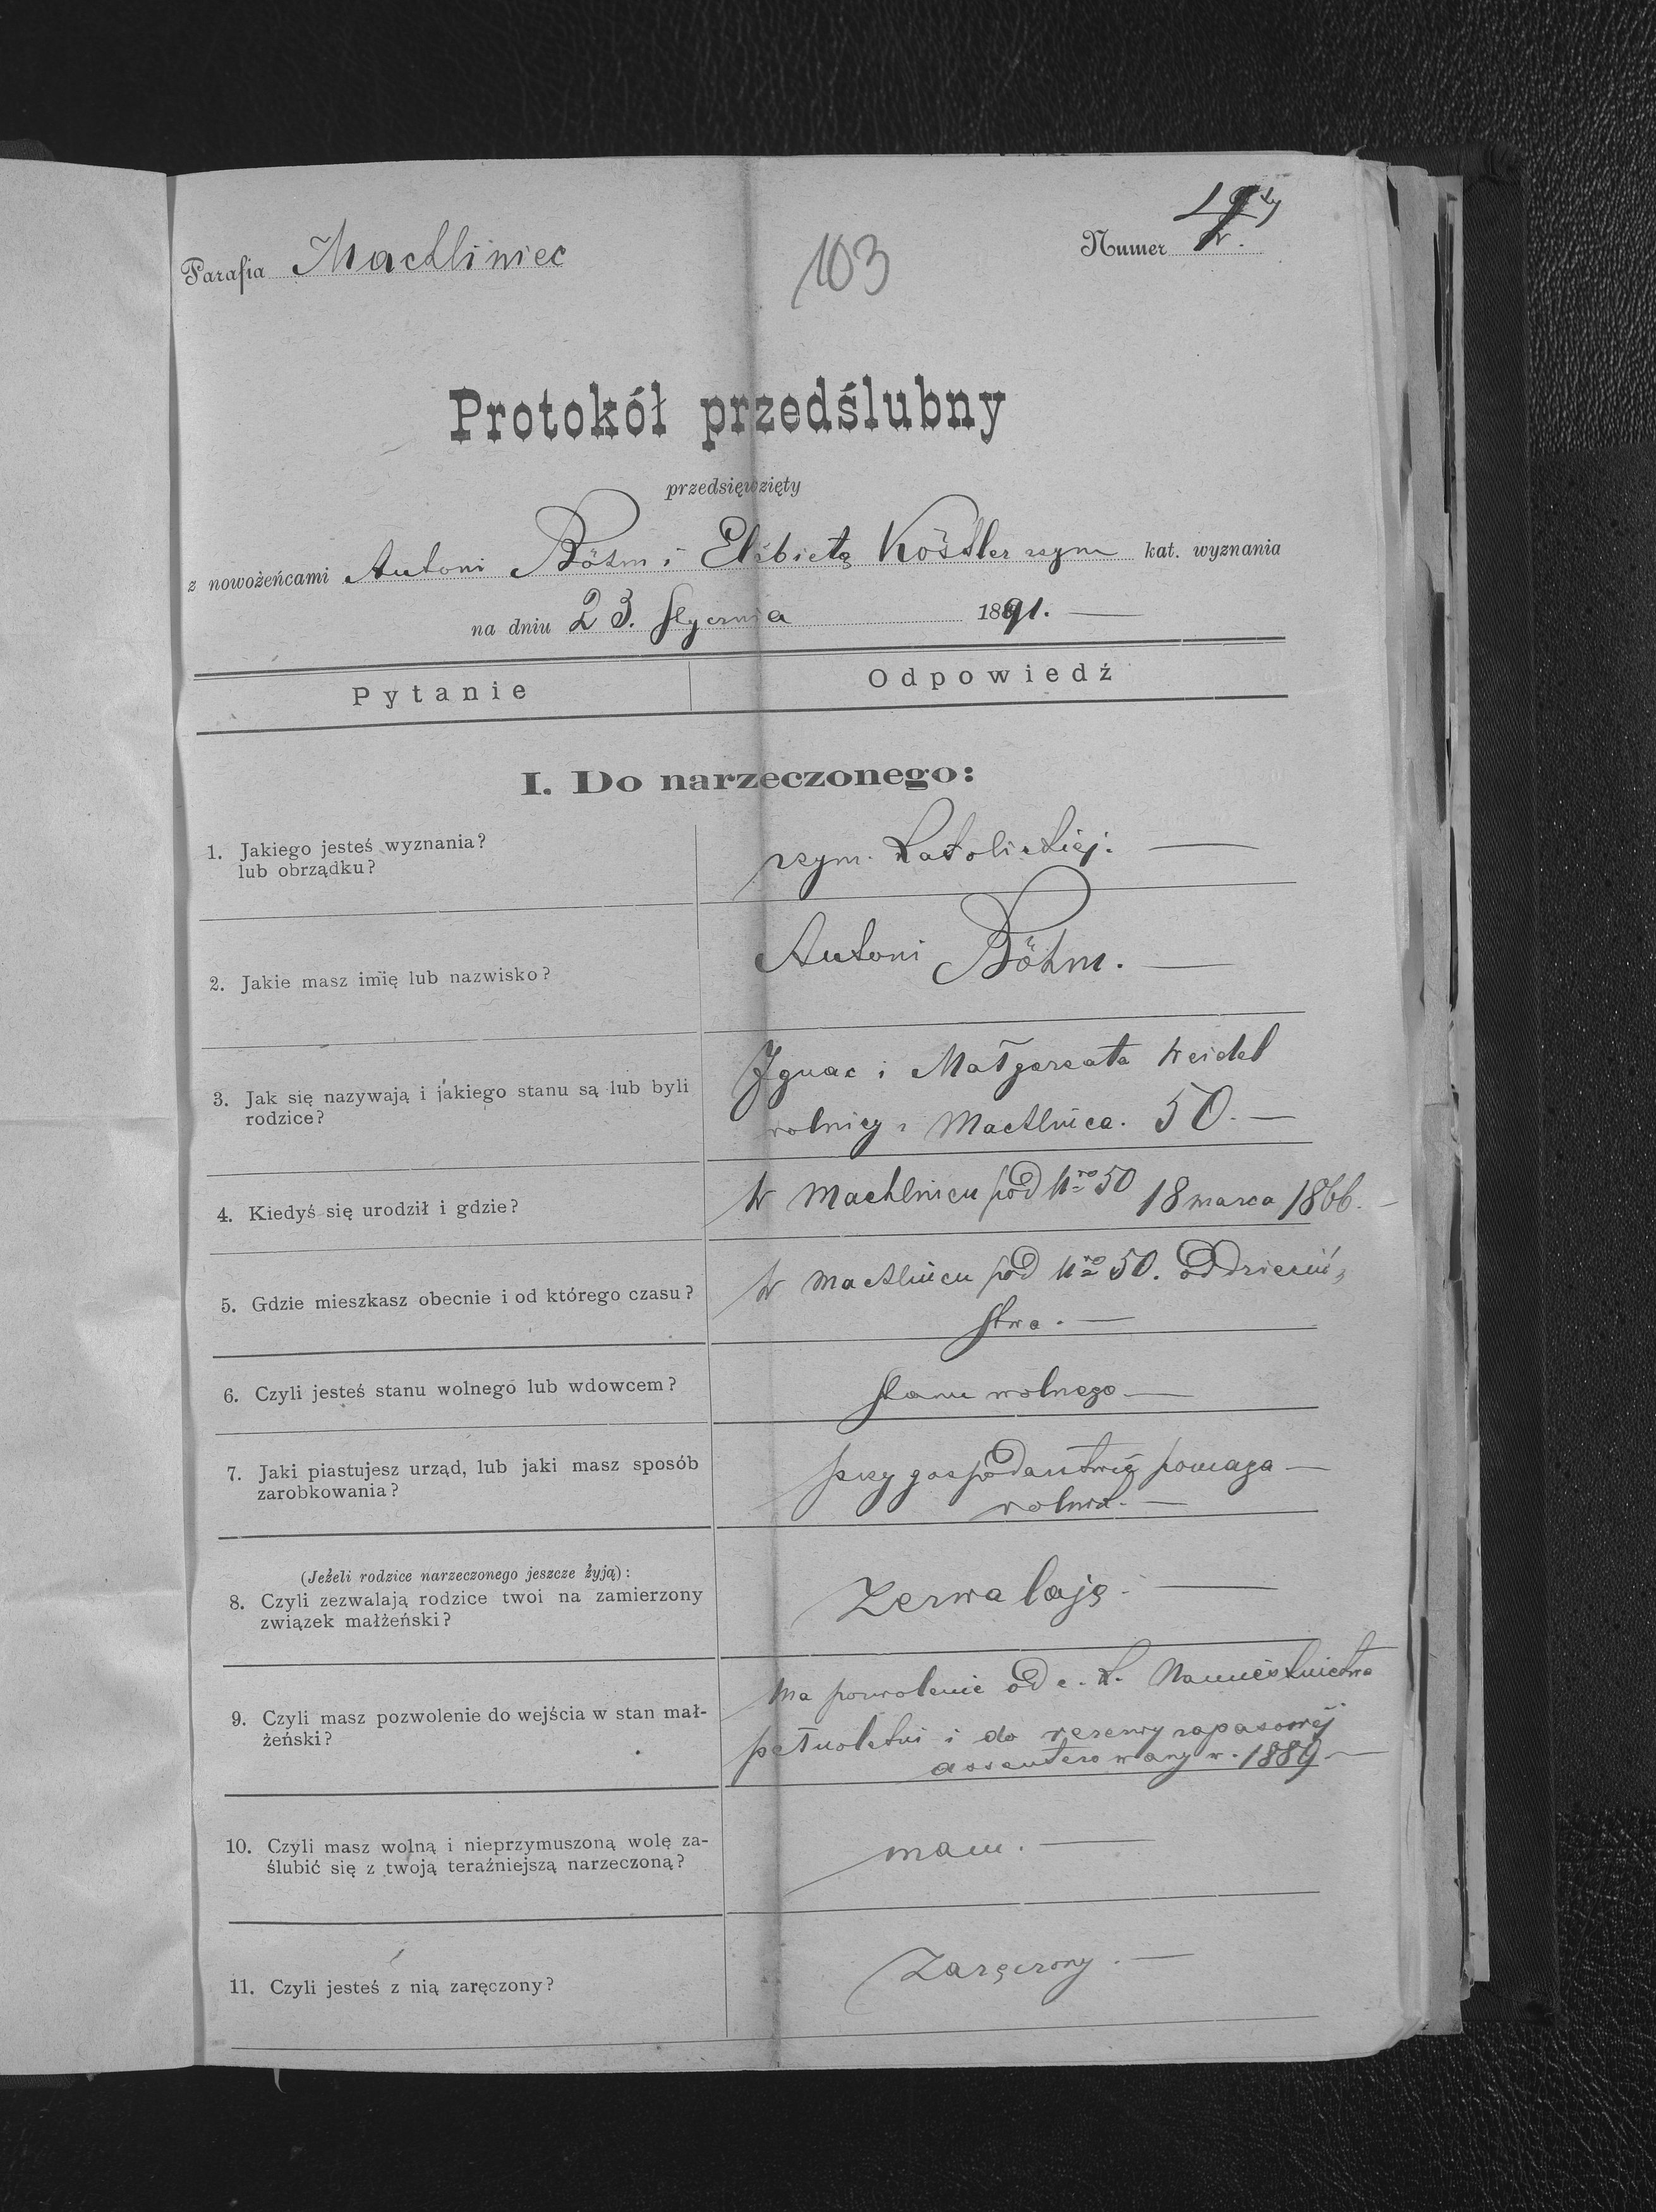 Parafia Machliniec
103
Numer
Protokół przedślubny
przedsięwzięty
z nowożeńcami Antoni Böhm i Elżbietą Köstler rzym kat. wyznania
na dniu 23. Stycznia 1891. —
Pytanie
Odpowiedź
I. Do narzeczonego:
1. Jakiego jesteś wyznania?
lub obrządku?
rzym. katolickiej. —
2. Jakie masz imię lub nazwisko?
Antoni Böhm. —
3. Jak się nazywają i jakiego stanu są lub byli
rodzice?
Ignac i Małgorzata Weidel
rolnicy z Machlińca. 50. —
4. Kiedyś się urodził i gdzie?
W Machlińcu pod Nro 50 18 marca 1866. —
5. Gdzie mieszkasz obecnie i od którego czasu?
W Machlińcu pod Nro 50. od dzieciń-
stwa. —
6. Czyli jesteś stanu wolnego lub wdowcem?
stanu wolnego —
7. Jaki piastujesz urząd, lub jaki masz sposób
zarobkowania?
przy gospodarstwie pomaga —
(Jeżeli rodzice narzeczonego jeszcze żyją):
8. Czyli zezwalają rodzice twoi na zamierzony
związek małżeński?
Zezwalają. —
9. Czyli masz pozwolenie do wejścia w stan mał-
żeński?
Ma pozwolenie od c. k. Namiestnictwa
pełnoletni i do rezerwy zapasowej
assenterowany w. 1889 —
10. Czyli masz wolną i nieprzymuszoną wolę za-
ślubić się z twoją teraźniejszą narzeczoną?
mam. —
11. Czyli jesteś z nią zaręczony?
Zaręczony. —